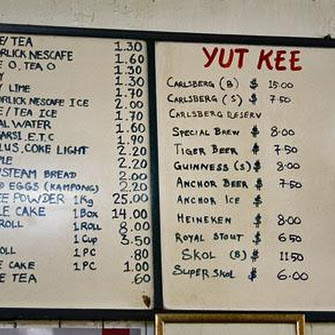 E/TEA 1.30
ORLICK NESCAFE 1.60
E O, TEA O 1.30
Y 1.30
Y LIME 1.70
ORLICK NESCAFE ICE 2.00
E/TEA ICE 1.70
AL WATER 1.60
GARSI.E.T.C 1.90
LUS, COKE LIGHT 2.20
PLE 2.20
/STEAM BREAD 2.00
D EGGS (KAMPONG) 2.20
EE POWDER 1Kg 25.00
LE CAKE 1 BOX 14.00
ROLL 1 ROLL 8.00
1 CUP 3.50
OLL 1 PC .80
E CAKE 1 PC 1.00
E TEA .60
YUT KEE
CARLSBERG (B) $ 15.00
CARLSBERG (S) $ 7.50
CARLSBERG RESERV
SPECIAL BREW $ 8.00
TIGER BEER $ 7.50
GUINNESS (S) $ 8.00
ANCHOR BEER $ 7.50
ANCHOR ICE $
HEINEKEN $ 8.00
ROYAL STOUT $ 6.50
SKOL (B) $ 11.50
SUPER SKOL $ 6.00